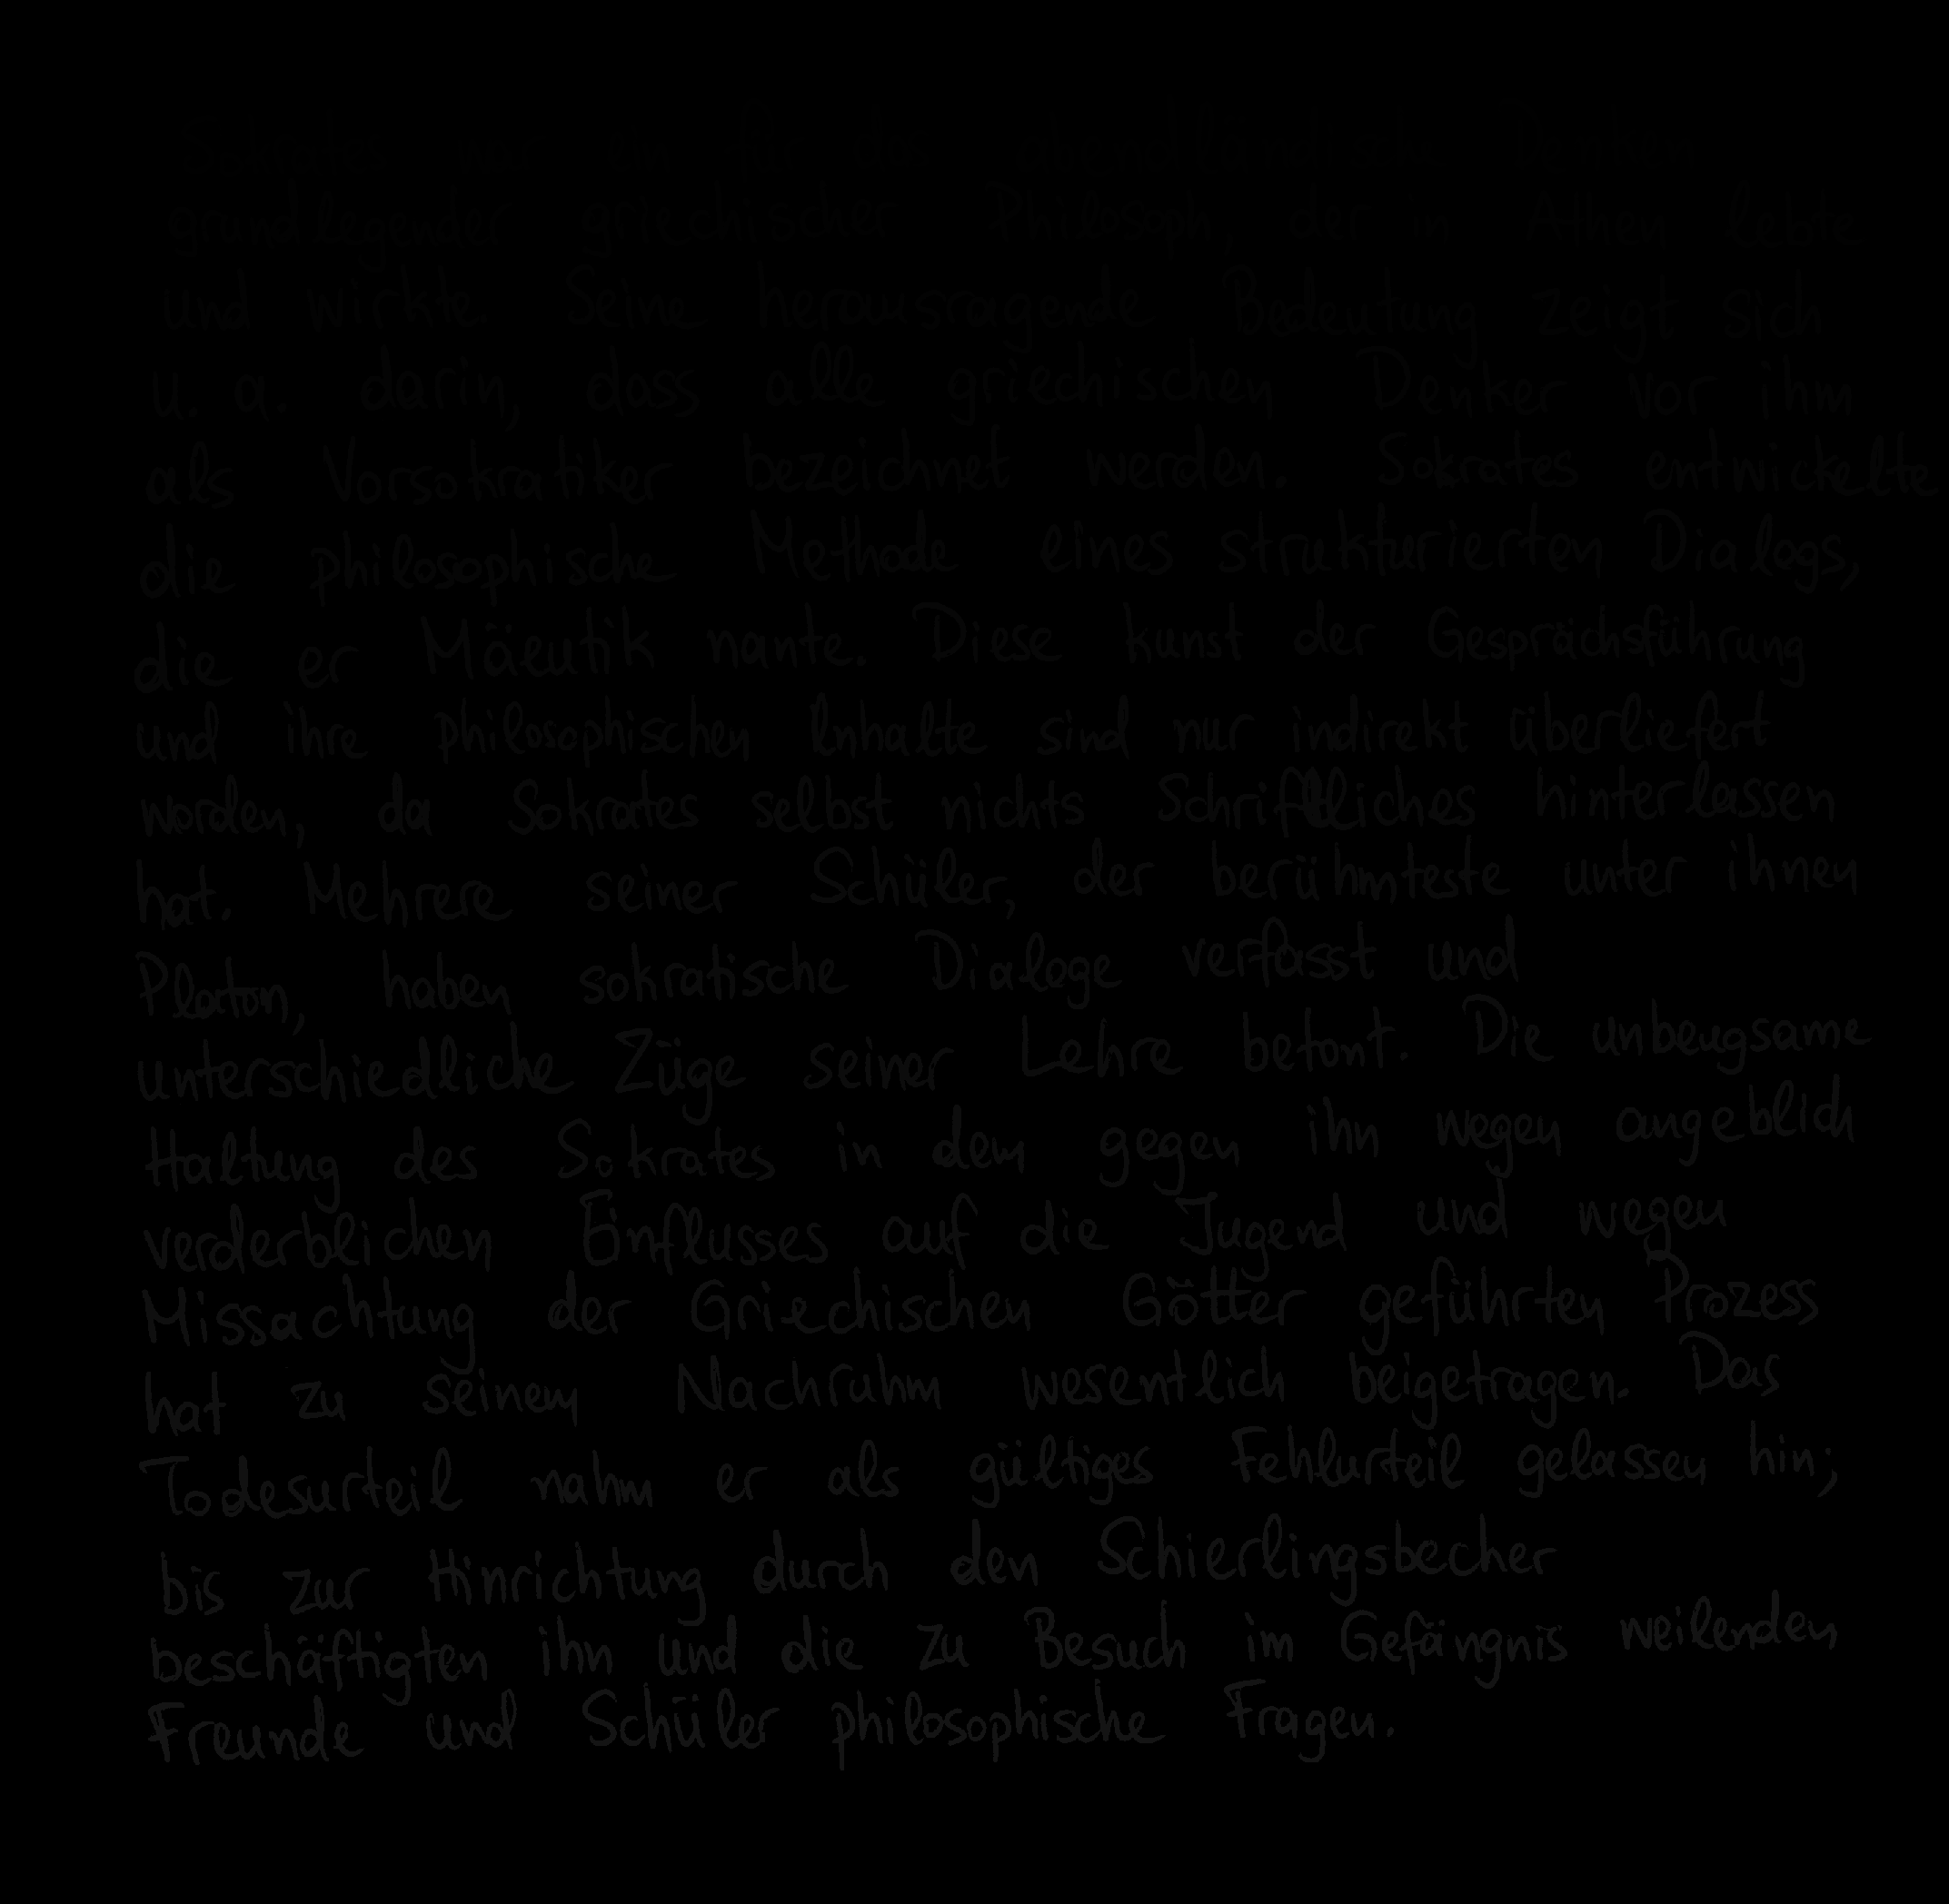 Sokrates war ein für das abendländische Denken
grundlegender griechischer Philosoph, der in Athen lebte
und wirkte. Seine herausragende Bedeutung zeigt sich
u. a. darin, dass alle griechischen Denker vor ihm
als Vorsokratiker bezeichnet werden. Sokrates entwickelte
die philosophische Methode eines strukturierten Dialogs,
die er Mäeutik nante. Diese kunst der Gesprächsführung
und ihre philosophischen Inhalte sind nur indirekt überliefert
worden, da Sokrates selbst nichts Schriftliches hinterlassen
hat. Mehrere seiner Schüler, der berühmteste unter ihnen
Platon, haben sokratische Dialoge verfasst und
unterschiedliche Züge seiner Lehre betont. Die unbeugsame
Haltung des Sokrates in dem gegen ihn wegen angeblich
verderblichen Einflusses auf die Jugend und wegen
Missachtung der Griechischen Götter geführten Prozess
hat zu seinem Nachruhm wesentlich beigetragen. Das
Todesurteil nahm er als gültiges Fehlurteil gelassen hin;
bis zur Hinrichtung durch den Schierlingsbecher
beschäftigten ihn und die zu Besuch im Gefängnis weilenden
Freunde und Schüler philosophische Fragen.